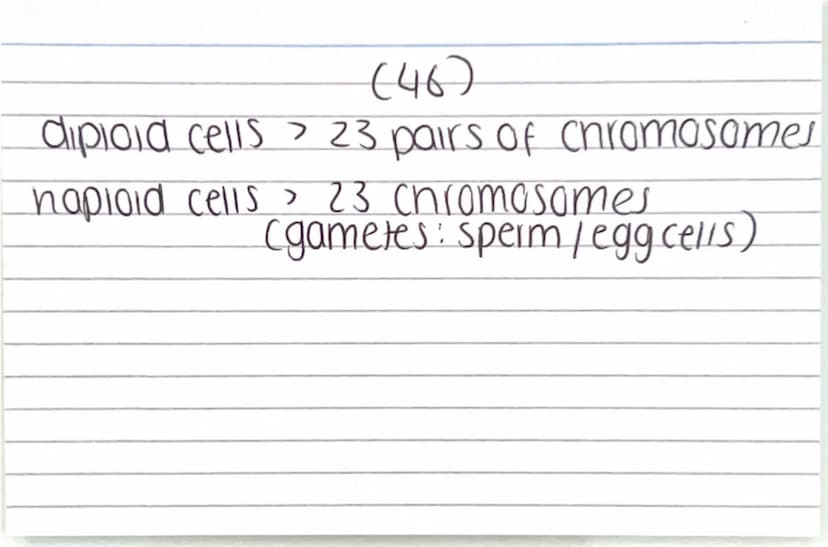 (46)
diploid cells > 23 pairs of chromosomes
haploid cells > 23 chromosomes
(gametes: sperm / egg cells)